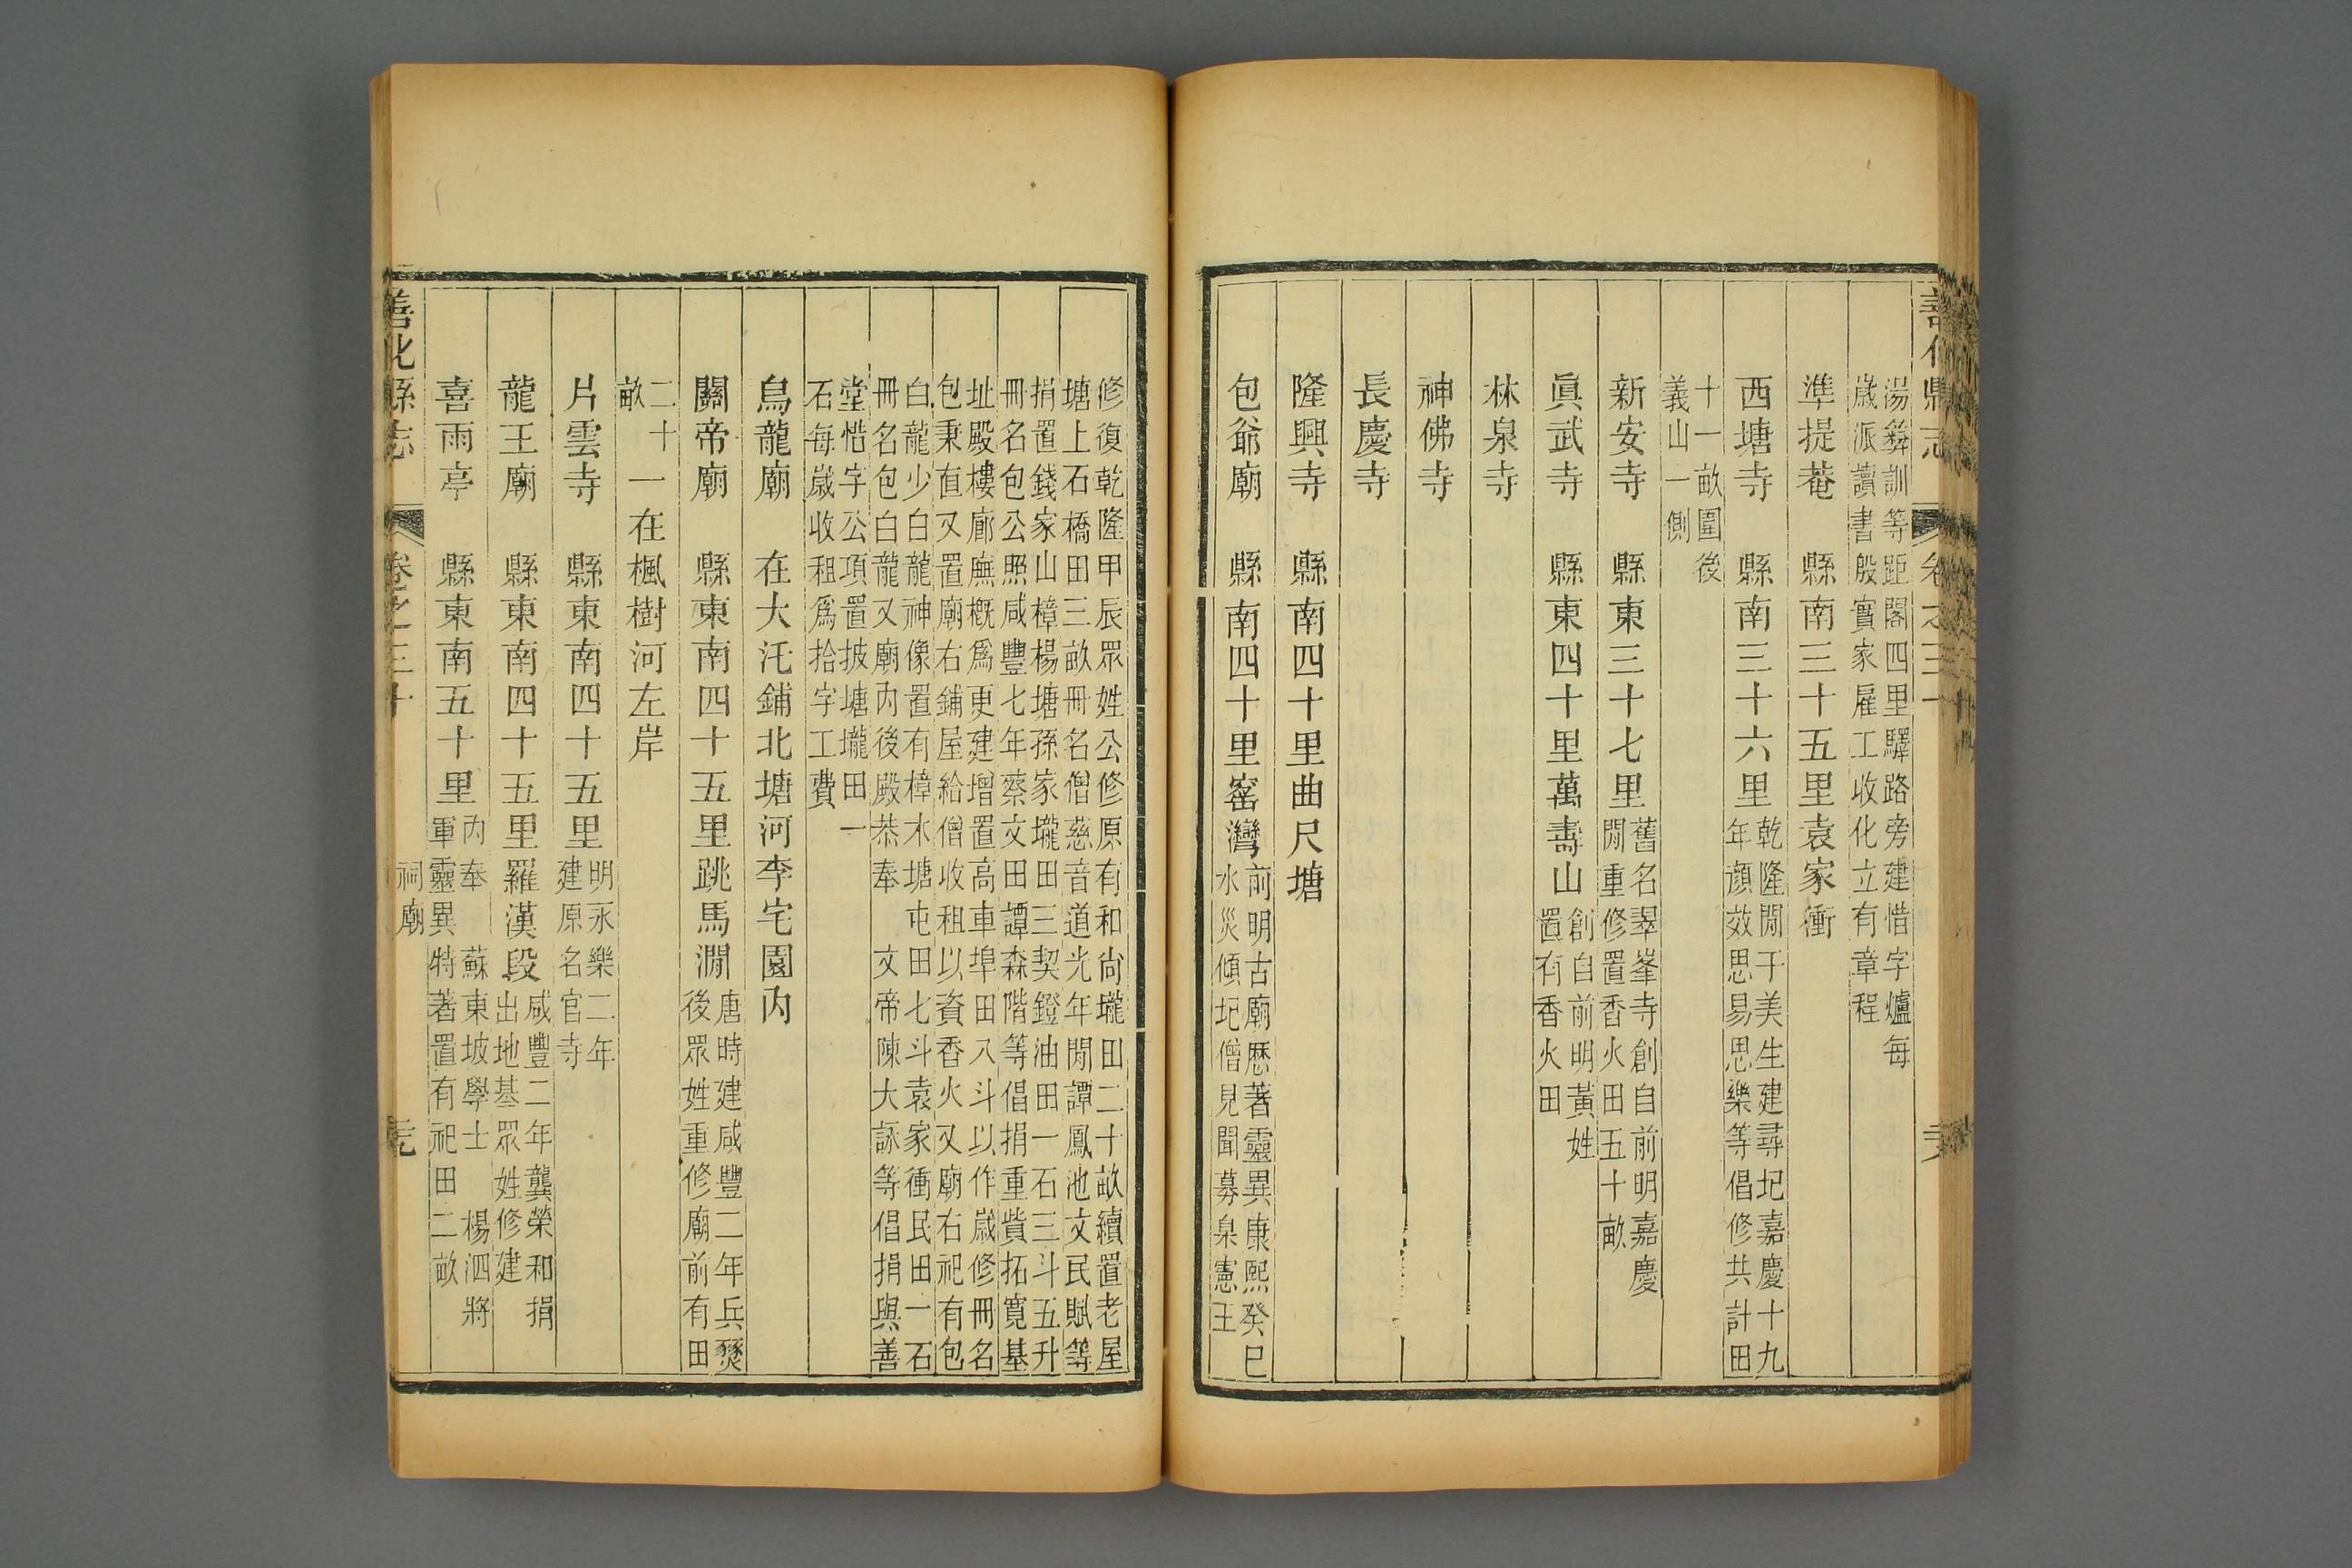 善化縣志 卷之三十
湯彝訓等距閣四里驛路旁建惜字爐每
歲派讀書殷實家雇工收化立有章程
準提菴 縣南三十五里袁家衝
西塘寺 縣南三十六里
乾隆閒于美生建尋圮嘉慶十九
年顏效思易思樂等倡修共計田
十一畝園後
義山一側
新安寺 縣東三十七里
舊名翠峯寺創自前明嘉慶
閒重修置香火田五十畝
眞武寺 縣東四十里萬壽山
創自前明黃姓
置有香火田
林泉寺
神佛寺
長慶寺
隆興寺 縣南四十里曲尺塘
包爺廟 縣南四十里窰灣
前明古廟歷著靈異康熙癸巳
水災傾圮僧見聞募臬憲王
修復乾隆甲辰眾姓公修原有和尙壠田二十畝續置老屋
塘上石橋田三畝冊名僧慈音道光年閒譚鳳池文民賦等
捐置錢家山樟楊塘孫家壠田三契鐙油田一石三斗五升
冊名包公照咸豐七年蔡文田譚森階等倡捐重貲拓寬基
址殿樓廊廡槪爲更建增置高車埠田入斗以作歲修冊名
包秉直又置廟右鋪屋給僧收租以資香火又廟右祀有包
白龍少白龍神像置有樟木塘屯田七斗袁家衝民田一石
冊名包白龍又廟內後殿恭奉 文帝陳大詠等倡捐與善
堂惜字公項置披塘壠田一
石每歲收租爲拾字工費
烏龍廟 在大汑鋪北塘河李宅園內
關帝廟 縣東南四十五里跳馬澗
唐時建咸豐二年兵燹
後眾姓重修廟前有田
二十
畝
一在楓樹河左岸
片雲寺 縣東南四十五里
明永樂二年
建原名官寺
龍王廟 縣東南四十五里羅漢段
咸豐二年龔榮和捐
出地基眾姓修建
喜雨亭 縣東南五十里
內奉 蘇東坡學士 楊泗將
軍靈異特著置有祀田二畝
善化縣志 卷之三十 祠廟 元